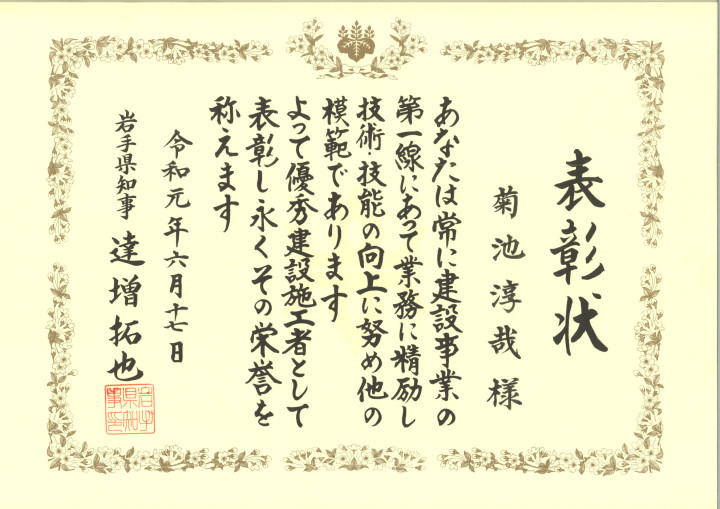 表彰状
菊池淳哉様
あなたは常に建設事業の
第一線にあって業務に精励し
技術・技能の向上に努め他の
模範であります
よって優秀建設施工者として
表彰し永くその栄誉を
称えます
令和元年六月十七日
岩手県知事 達増拓也
岩手
県知
事印